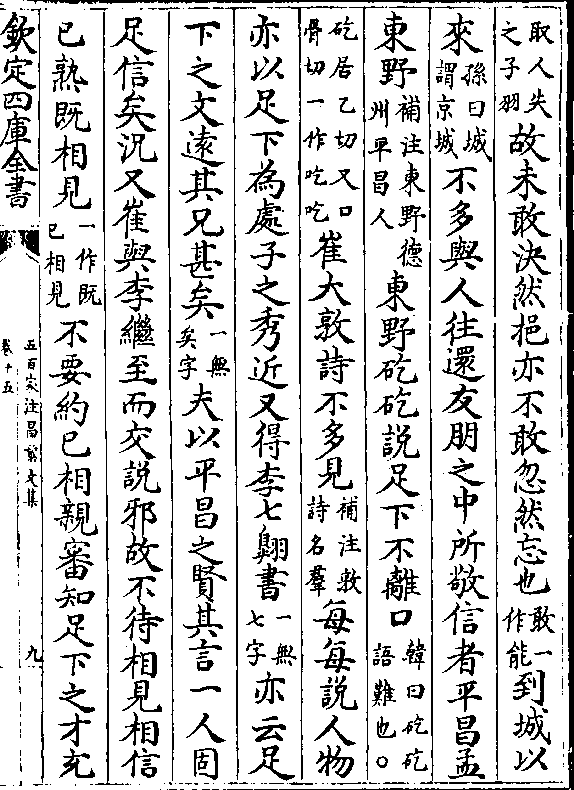 取人失之子羽故未敢決然挹亦不敢忽然忘也敢一作能到城以
來孫曰城謂京城不多與人往還友朋之中所敬信者平昌孟
東野補注東野德州平昌人東野矻矻說足下不離口韓曰矻矻語難也○
矻居乙切又口骨切一作吃吃崔大敦詩不多見補注敦詩名羣每每說人物
亦以足下為處子之秀近又得李七翺書一無七字亦云足
下之文遠其兄甚矣一無矣字夫以平昌之賢其言一人固
足信矣況又崔與李繼至而交說邪故不待相見相信
已熟既相見一作既已相見不要約已相親審知足下之才充
欽定四庫全書
五百家注昌黎文集
卷十五
九